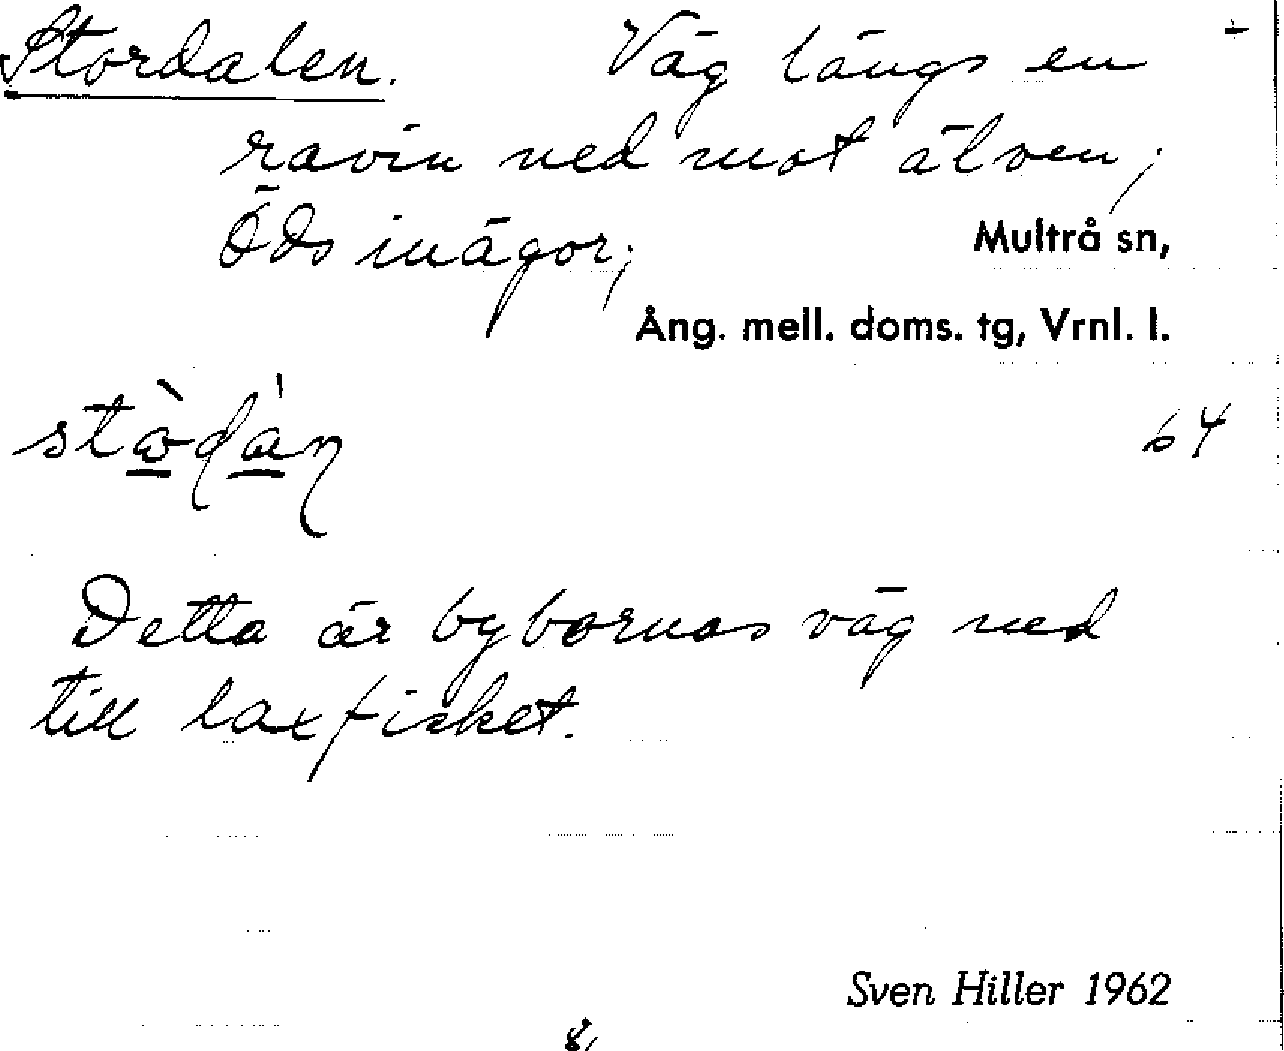 Stordalen. Väg längs en
ravin ned mot älven;
Öds inägor; Multrå sn,
Ång. mell. doms. tg, Vrnl. l.
64
Detta är bybornas väg ned
till laxfisket.
Sven Hiller 1962